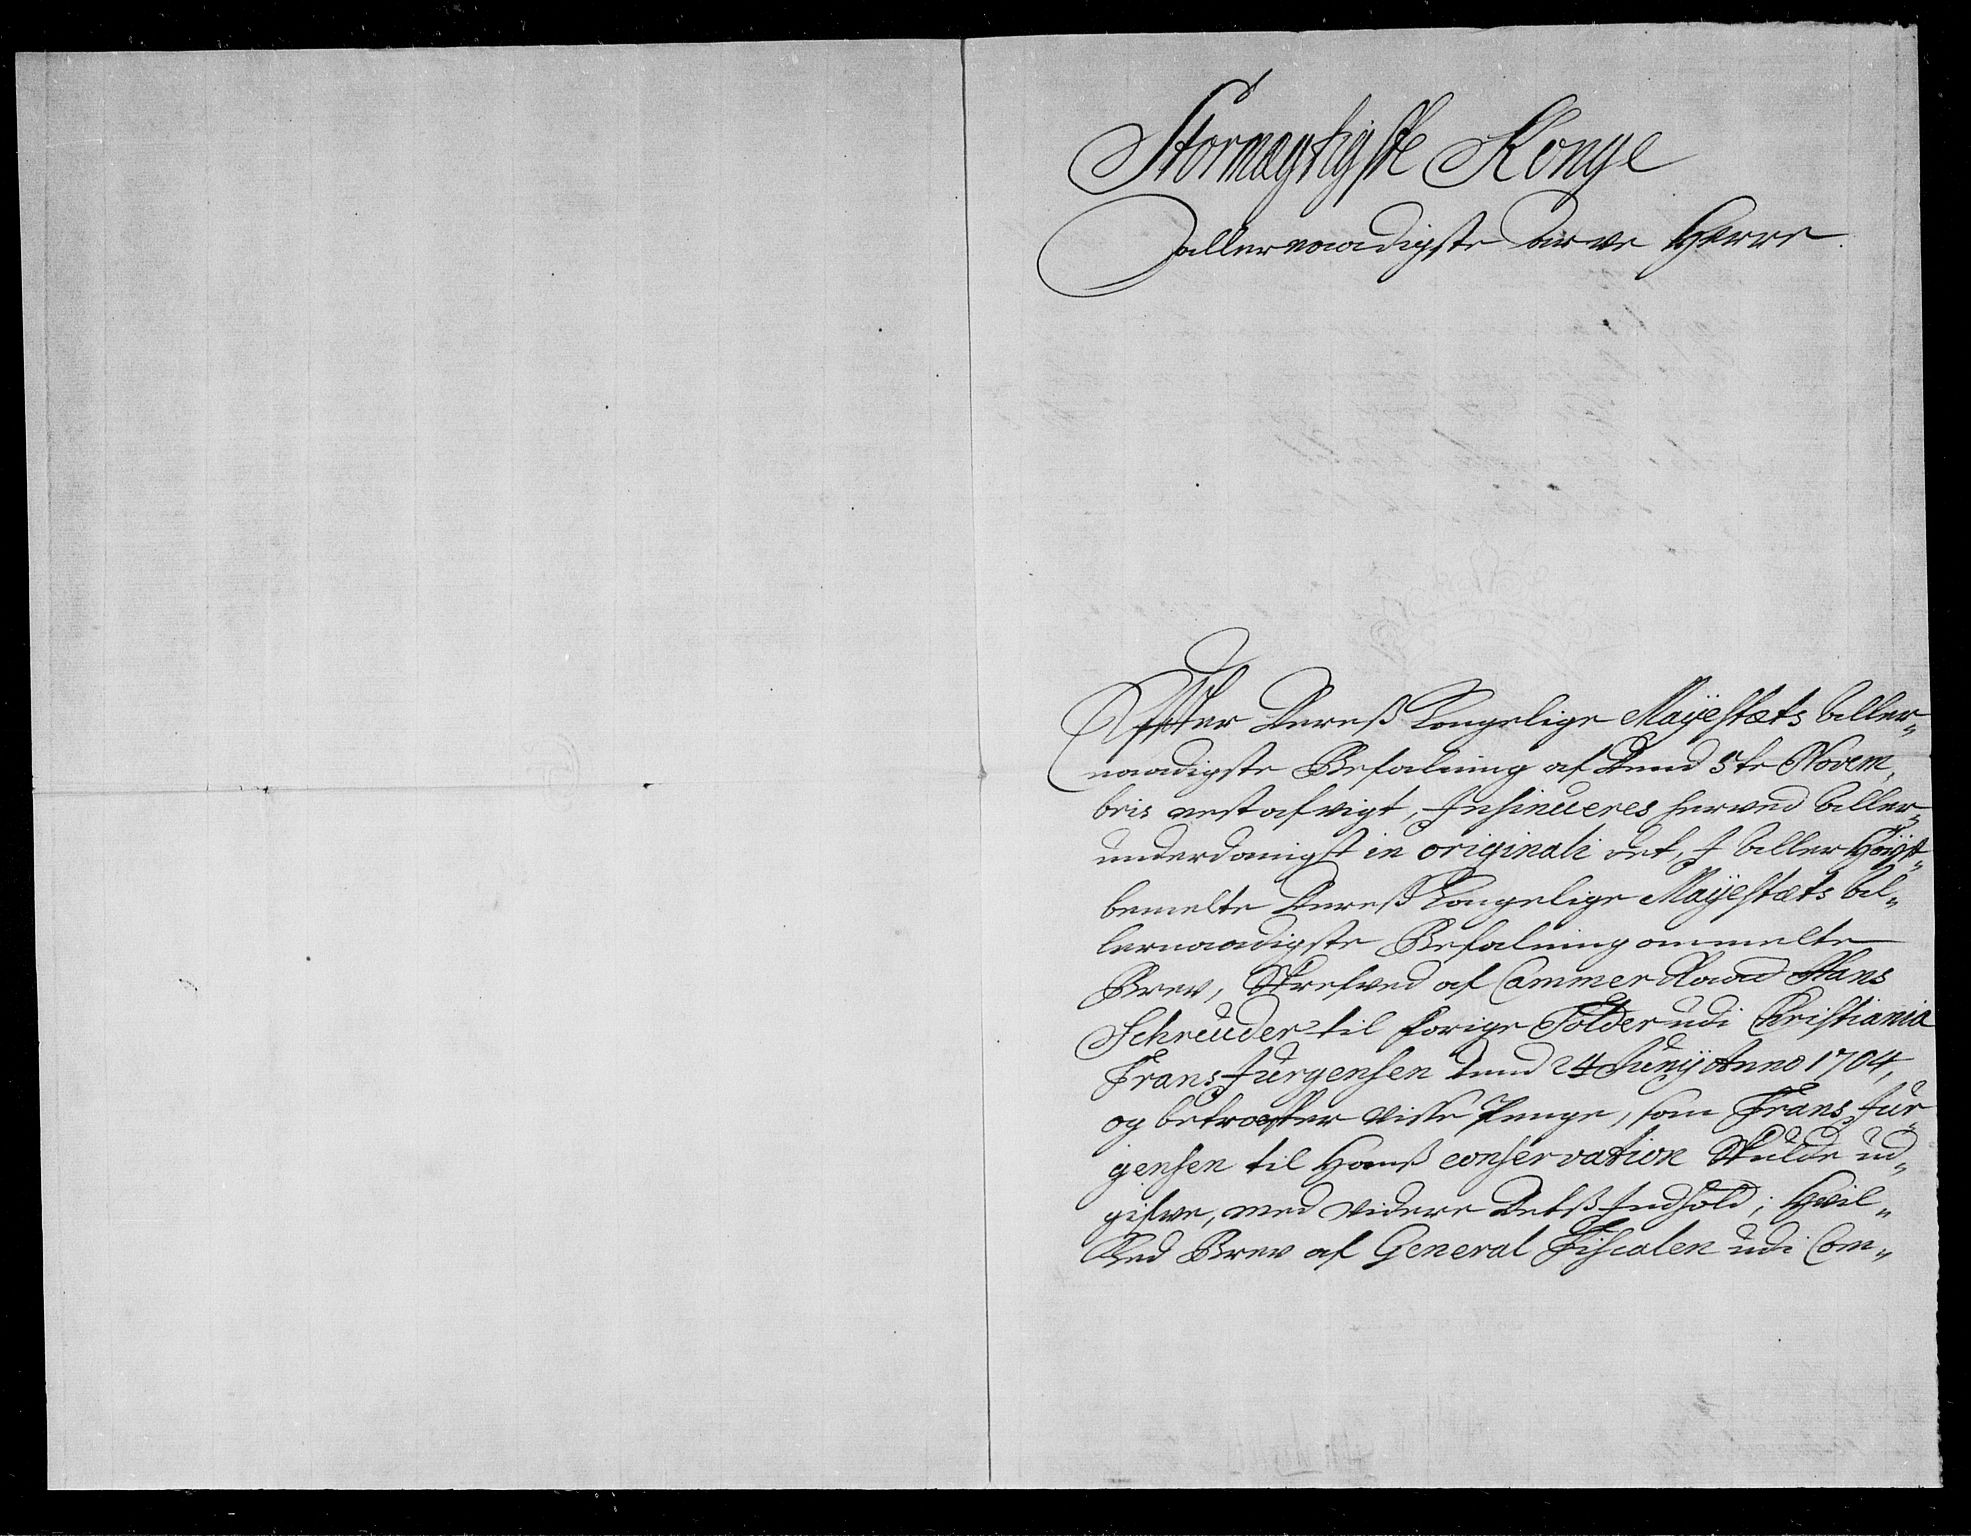 Stormægtigste Konge
allernaadigste Arve Herre.
Effter Dereß Kongelige Mayestæts aller-
naadigste Befalning af dend 5te Novem
bris nestafvigt, Insinueres herved aller-
underdanigst in originali det, I aller Höyst-
bemelte Dereß Kongelige Mayestæts al-
lernaadigste Befalning ommelte
Brev, Skrefved af Cammer Raad Hans
Schreuder til forige Tolder udi Christiania
Frans Jürgensen dend 24 Junij Anno 1704,
og betræffer visse Penge, som Frans Jür
gensen til Hanß conservation Skulde ud-
gifve, med videre Detß Indhold; Hvil-
ked Brev af General Fiscalen udi Com-